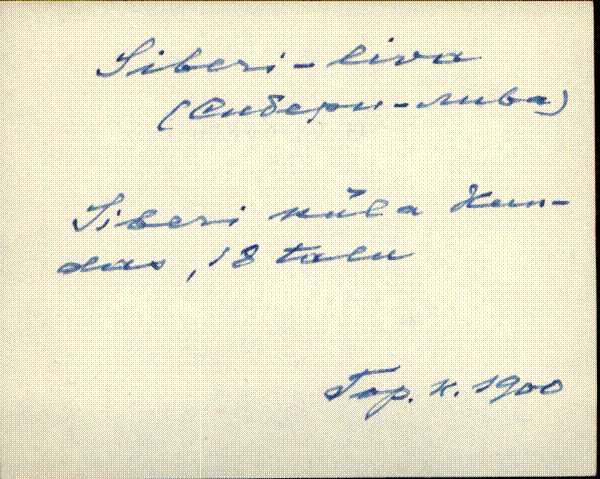 Siberi-liva
(Сибери-лива)
Siberi küla Kun-
das, 18 talu
Top. k. 1900